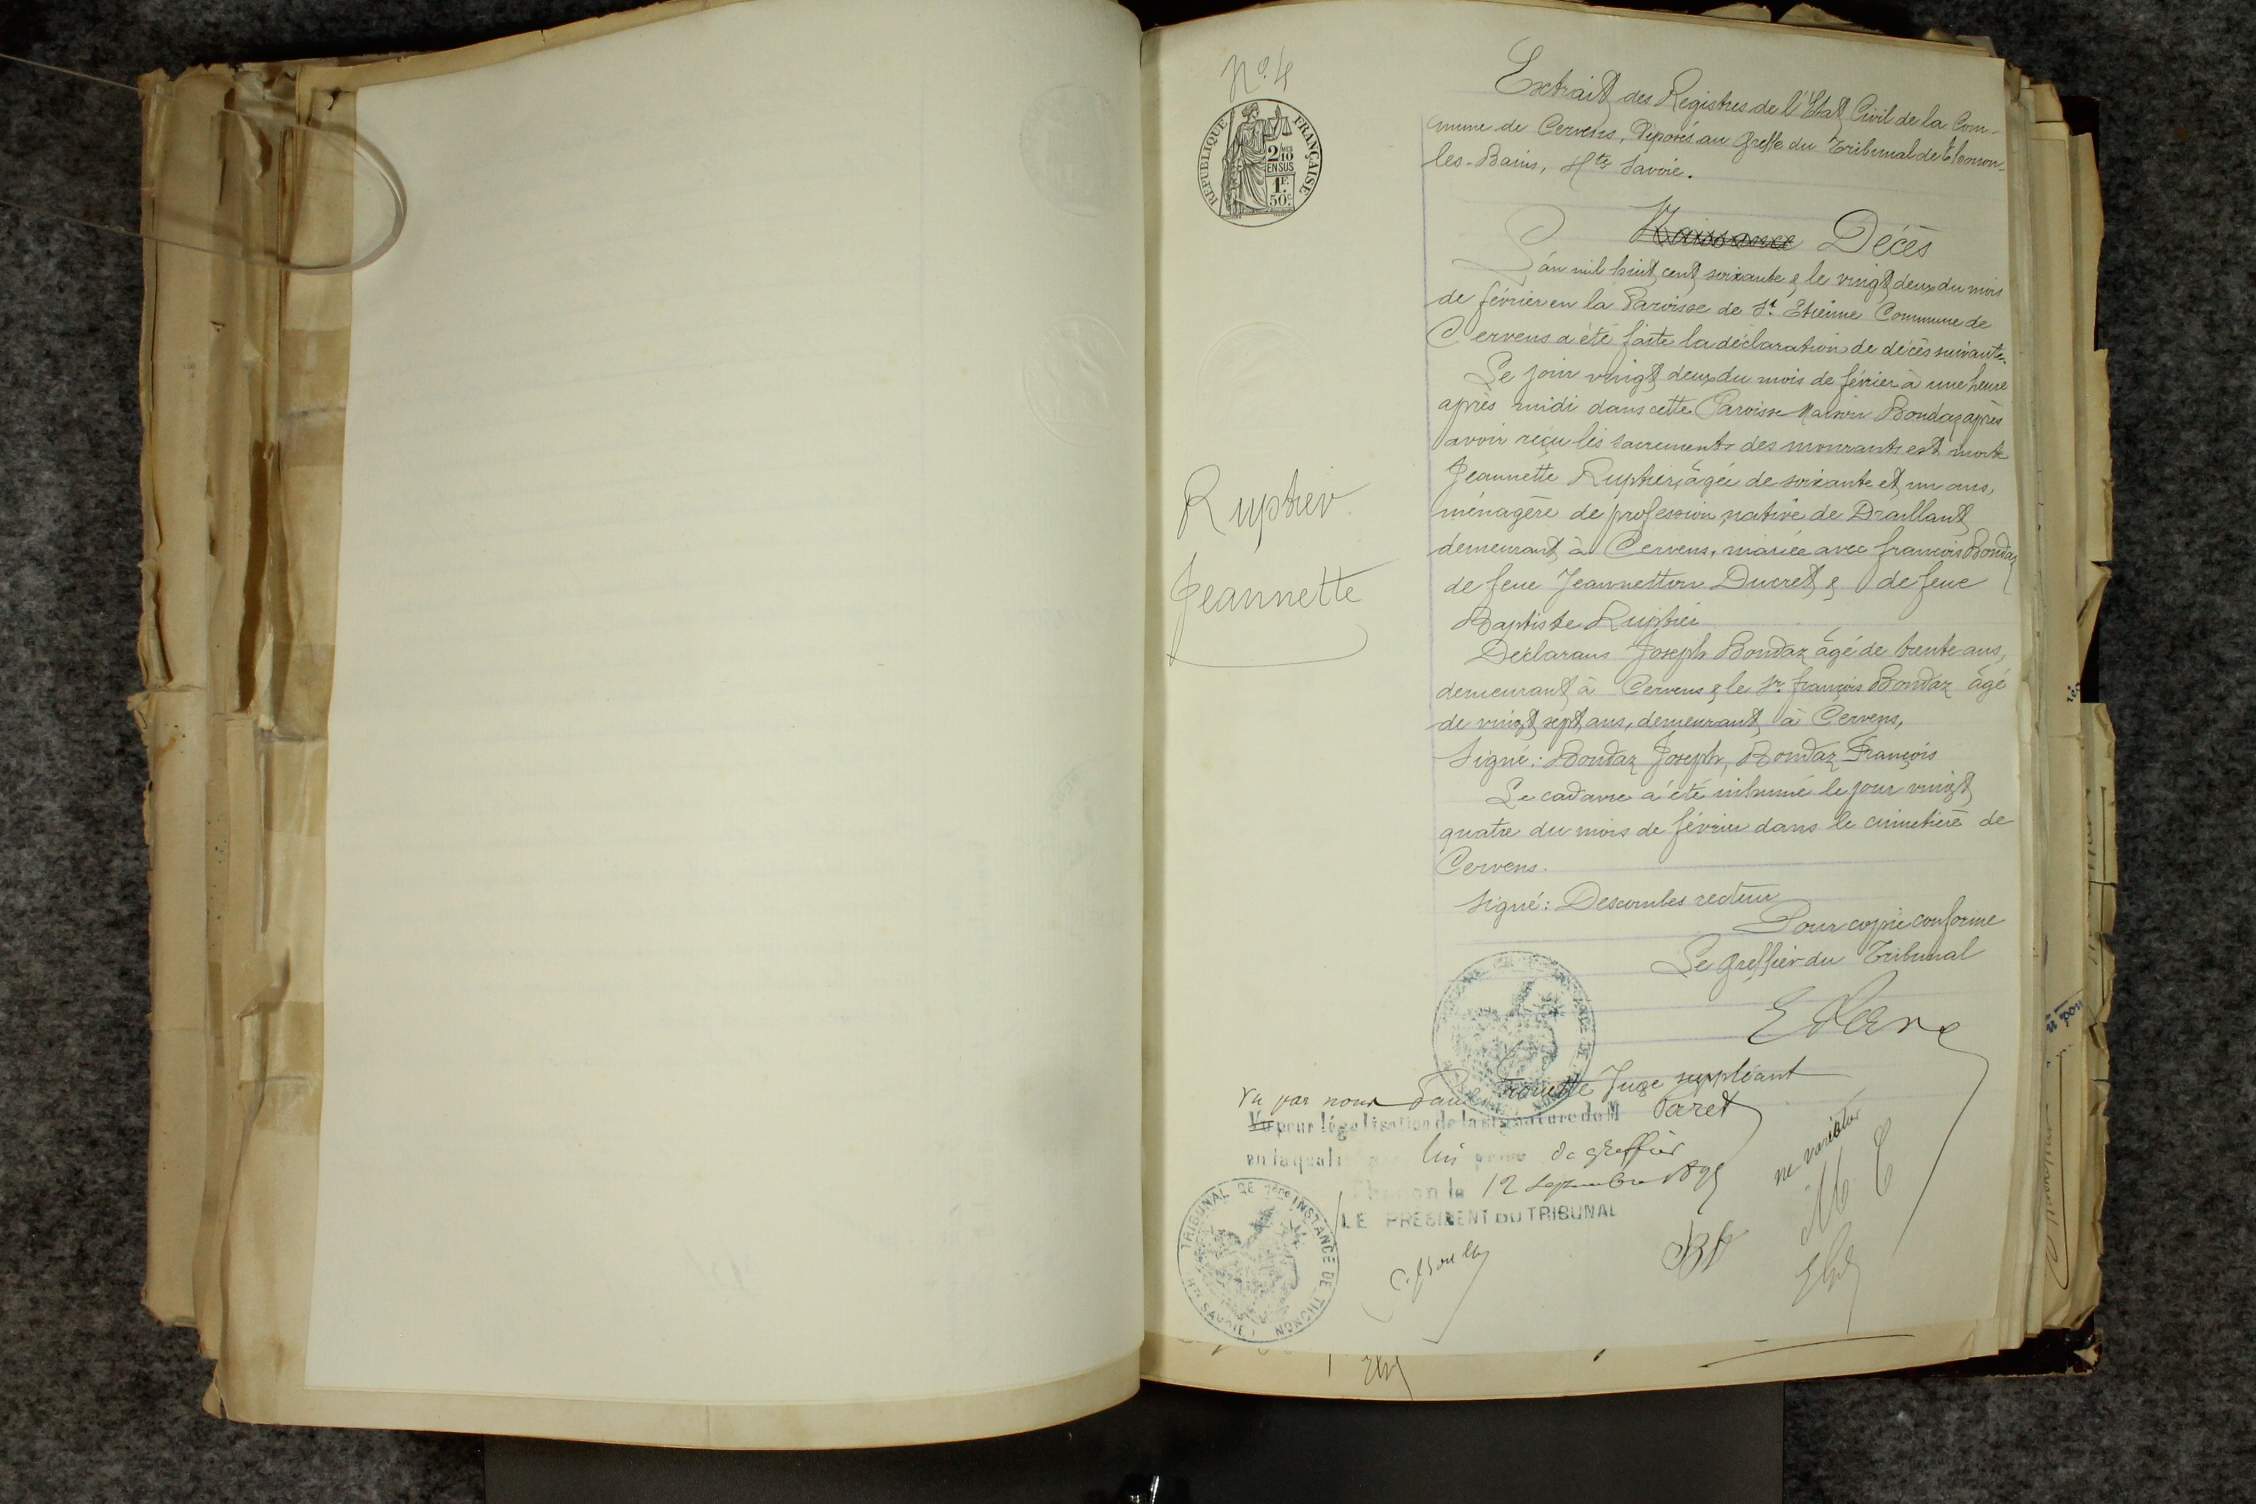 No. 4
REPUBLIQUE FRANÇAISE
2/10
EN SUS
1F.
50c.
Extrait des Registres de l'Etat Civil de la Com-
mune de Cervens, déposés au Greffe du Tribunal de Thonon-
les-Bains, Hte Savoie.
Naissance Décès
L'an mil huit cent soixante & le vingt deux du mois
de février en la Paroisse de St. Etienne Commune de
Cervens a été faite la déclaration de décès suivante.
Le jour vingt deux du mois de février à une heure
après midi dans cette Paroisse Maison Bondaz après
avoir reçu les sacrements des mourants est morte
Jeannette Ruptier, âgée de soixante et un ans,
ménagère de profession native de Draillant
demeurant à Cervens, mariée avec françois Bondaz
de feue Jeannetton Ducret & de feue
Baptiste Ruptier
Déclarans Joseph Bondaz âgé de trente ans,
demeurant à Cervens & le Sr. françois Bondaz âgé
de vingt sept ans, demeurant à Cervens,
Signé: Bondaz Joseph, Bondaz François
Le cadavre a été inhumé le jour vingt
quatre du mois de février dans le cimetière de
Cervens.
Signé: Descombes recteur
Pour copie conforme
Le Greffier du Tribunal
Ruptier
Jeannette
Vu par nous Juge suppléant
Vu pour légalisation de la signature de M Paret
en la quali lui de greffier
Thonon le 12 septembre
LE PRESIDENT DU TRIBUNAL
ne varietur
TRIBUNAL DE 1ère INSTANCE DE THONON
Hte SAVOIE